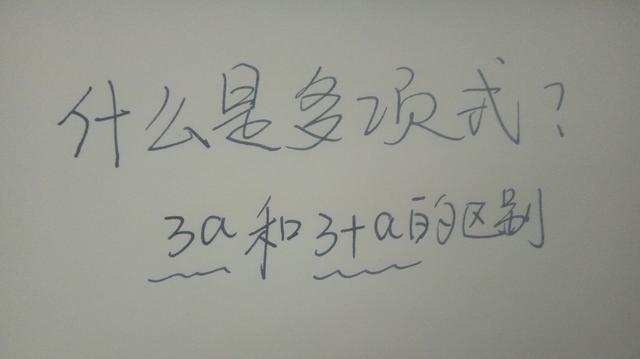 什么是多项式？
3a和3+a的区别